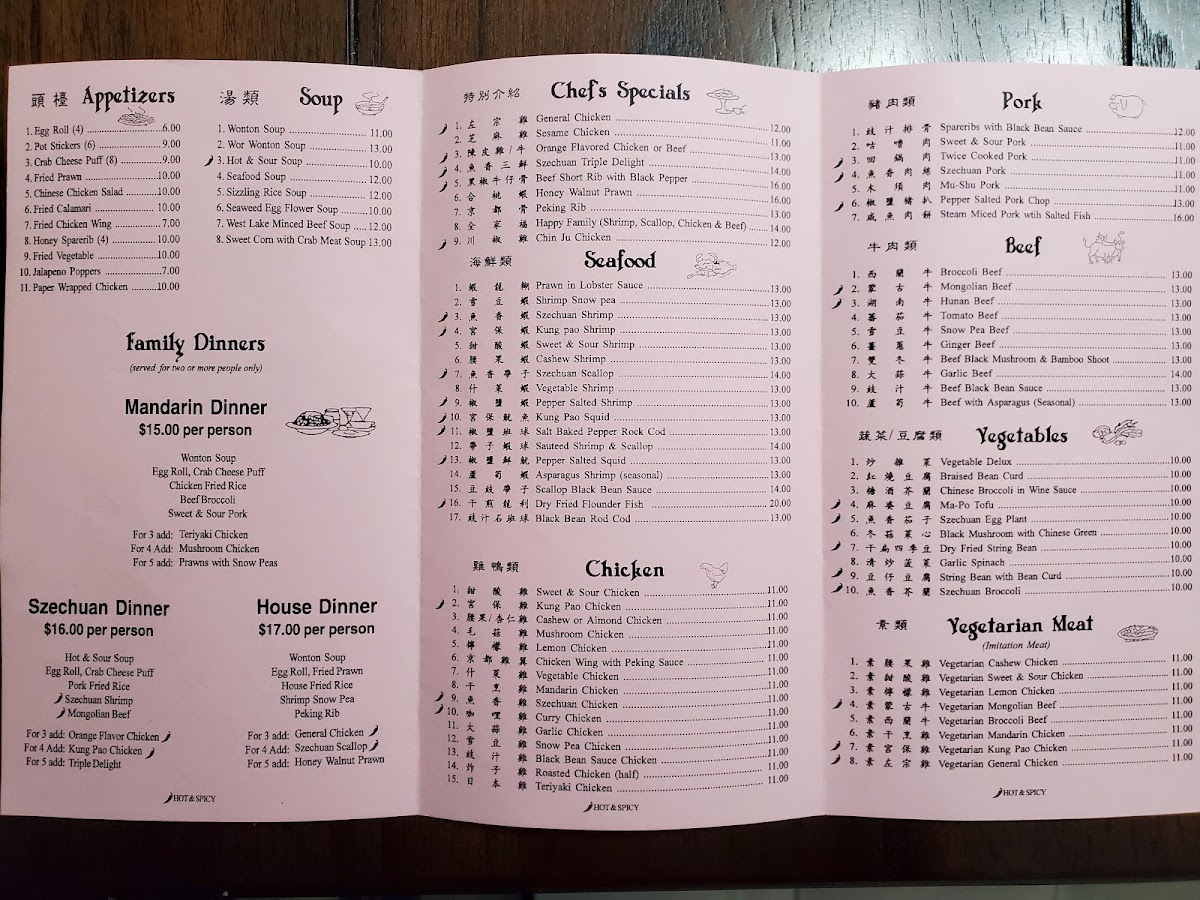 頭檯 Appetizers
1. Egg Roll (4) 6.00
2. Pot Stickers (6) 9.00
3. Crab Cheese Puff (8) 9.00
4. Fried Prawn 10.00
5. Chinese Chicken Salad 10.00
6. Fried Calamari 10.00
7. Fried Chicken Wing 7.00
8. Honey Sparerib (4) 10.00
9. Fried Vegetable 10.00
10. Jalapeno Poppers 7.00
11. Paper Wrapped Chicken 10.00
湯類 Soup
1. Wonton Soup 11.00
2. Wor Wonton Soup 13.00
3. Hot & Sour Soup 10.00
4. Seafood Soup 12.00
5. Sizzling Rice Soup 12.00
6. Seaweed Egg Flower Soup 10.00
7. West Lake Minced Beef Soup 12.00
8. Sweet Corn with Crab Meat Soup 13.00
Family Dinners
(served for two or more people only)
Mandarin Dinner
$15.00 per person
Wonton Soup
Egg Roll, Crab Cheese Puff
Chicken Fried Rice
Beef Broccoli
Sweet & Sour Pork
For 3 add: Teriyaki Chicken
For 4 Add: Mushroom Chicken
For 5 add: Prawns with Snow Peas
Szechuan Dinner
$16.00 per person
Hot & Sour Soup
Egg Roll, Crab Cheese Puff
Pork Fried Rice
Szechuan Shrimp
Mongolian Beef
For 3 add: Orange Flavor Chicken
For 4 Add: Kung Pao Chicken
For 5 add: Triple Delight
House Dinner
$17.00 per person
Wonton Soup
Egg Roll, Fried Prawn
House Fried Rice
Shrimp Snow Pea
Peking Rib
For 3 add: General Chicken
For 4 Add: Szechuan Scallop
For 5 add: Honey Walnut Prawn
HOT & SPICY
特別介紹 Chef's Specials
1. 左宗雞 General Chicken 12.00
2. 芝麻雞 Sesame Chicken 11.00
3. 陳皮雞/牛 Orange Flavored Chicken or Beef 13.00
4. 魚香三鮮 Szechuan Triple Delight 14.00
5. 黑椒牛仔骨 Beef Short Rib with Black Pepper 16.00
6. 合桃蝦 Honey Walnut Prawn 16.00
7. 京都骨 Peking Rib 13.00
8. 全家福 Happy Family (Shrimp, Scallop, Chicken & Beef) 14.00
9. 川椒雞 Chin Ju Chicken 12.00
海鮮類 Seafood
1. 蝦龍糊 Prawn in Lobster Sauce 13.00
2. 雪豆蝦 Shrimp Snow pea 13.00
3. 魚香蝦 Szechuan Shrimp 13.00
4. 宮保蝦 Kung pao Shrimp 13.00
5. 甜酸蝦 Sweet & Sour Shrimp 13.00
6. 腰果蝦 Cashew Shrimp 13.00
7. 魚香帶子 Szechuan Scallop 14.00
8. 什菜蝦 Vegetable Shrimp 13.00
9. 椒鹽蝦 Pepper Salted Shrimp 13.00
10. 宮保魷魚 Kung Pao Squid 13.00
11. 椒鹽班球 Salt Baked Pepper Rock Cod 13.00
12. 帶子蝦球 Sauteed Shrimp & Scallop 14.00
13. 椒鹽鮮魷 Pepper Salted Squid 13.00
14. 蘆筍蝦 Asparagus Shrimp (seasonal) 13.00
15. 豆豉帶子 Scallop Black Bean Sauce 14.00
16. 干煎龍利 Dry Fried Flounder Fish 20.00
17. 豉汁石班球 Black Bean Rod Cod 13.00
雞鴨類 Chicken
1. 甜酸雞 Sweet & Sour Chicken 11.00
2. 宮保雞 Kung Pao Chicken 11.00
3. 腰果/杏仁雞 Cashew or Almond Chicken 11.00
4. 毛菇雞 Mushroom Chicken 11.00
5. 檸檬雞 Lemon Chicken 11.00
6. 京都雞翼 Chicken Wing with Peking Sauce 11.00
7. 什菜雞 Vegetable Chicken 11.00
8. 干烹雞 Mandarin Chicken 11.00
9. 魚香雞 Szechuan Chicken 11.00
10. 咖哩雞 Curry Chicken 11.00
11. 大蒜雞 Garlic Chicken 11.00
12. 雪豆雞 Snow Pea Chicken 11.00
13. 豉汁雞 Black Bean Sauce Chicken 11.00
14. 炸子雞 Roasted Chicken (half) 11.00
15. 日本雞 Teriyaki Chicken 11.00
HOT & SPICY
豬肉類 Pork
1. 豉汁排骨 Spareribs with Black Bean Sauce 12.00
2. 咕嚕肉 Sweet & Sour Pork 11.00
3. 回鍋肉 Twice Cooked Pork 11.00
4. 魚香肉絲 Szechuan Pork 11.00
5. 木須肉 Mu-Shu Pork 11.00
6. 椒鹽豬扒 Pepper Salted Pork Chop 13.00
7. 咸魚肉餅 Steam Miced Pork wtih Salted Fish 16.00
牛肉類 Beef
1. 西蘭牛 Broccoli Beef 13.00
2. 蒙古牛 Mongolian Beef 13.00
3. 湖南牛 Hunan Beef 13.00
4. 蕃茄牛 Tomato Beef 13.00
5. 雪豆牛 Snow Pea Beef 13.00
6. 薑蔥牛 Ginger Beef 13.00
7. 雙冬牛 Beef Black Mushroom & Bamboo Shoot 13.00
8. 大蒜牛 Garlic Beef 14.00
9. 豉汁牛 Beef Black Bean Sauce 13.00
10. 蘆筍牛 Beef with Asparagus (Seasonal) 13.00
蔬菜/豆腐類 Vegetables
1. 炒雜菜 Vegetable Delux 10.00
2. 紅燒豆腐 Braised Bean Curd 10.00
3. 糟酒芥蘭 Chinese Broccoli in Wine Sauce 10.00
4. 麻婆豆腐 Ma-Po Tofu 10.00
5. 魚香茄子 Szechuan Egg Plant 10.00
6. 冬菇菜心 Black Mushroom with Chinese Green 10.00
7. 干扁四季豆 Dry Fried String Bean 10.00
8. 清炒菠菜 Garlic Spinach 10.00
9. 豆仔豆腐 String Bean with Bean Curd 10.00
10. 魚香芥蘭 Szechuan Broccoli 10.00
素類 Vegetarian Meat
(Imitation Meat)
1. 素腰果雞 Vegetarian Cashew Chicken 11.00
2. 素甜酸雞 Vegetarian Sweet & Sour Chicken 11.00
3. 素檸檬雞 Vegetarian Lemon Chicken 11.00
4. 素蒙古牛 Vegetarian Mongolian Beef 11.00
5. 素西蘭牛 Vegetarian Broccoli Beef 11.00
6. 素干烹雞 Vegetarian Mandarin Chicken 11.00
7. 素宮保雞 Vegetarian Kung Pao Chicken 11.00
8. 素左宗雞 Vegetarian General Chicken 11.00
HOT & SPICY